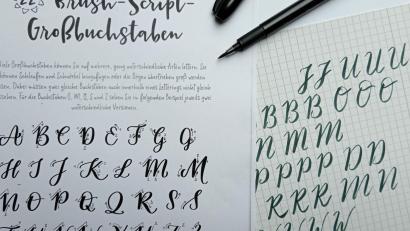 22
Brush-Script-
Großbuchstaben
Viele Großbuchstaben können Sie auf mehrere, ganz unterschiedliche Arten lettern. Sie
können Schlaufen und Schnörkel hinzufügen oder die Bögen übertreiben groß werden
lassen. Dabei müssen gleiche Buchstaben auch innerhalb eines Letterings nicht gleiche
aussehen. Für die Buchstaben G, M, Q, S und Z sehen Sie in folgendem Beispiel jeweils zwei
unterschiedliche Versionen.
A B C D E F G G
H I J K L M M
N O P Q Q R S S
J J U U U
B B B O O O
N M M
P P P P D D
R R R M N